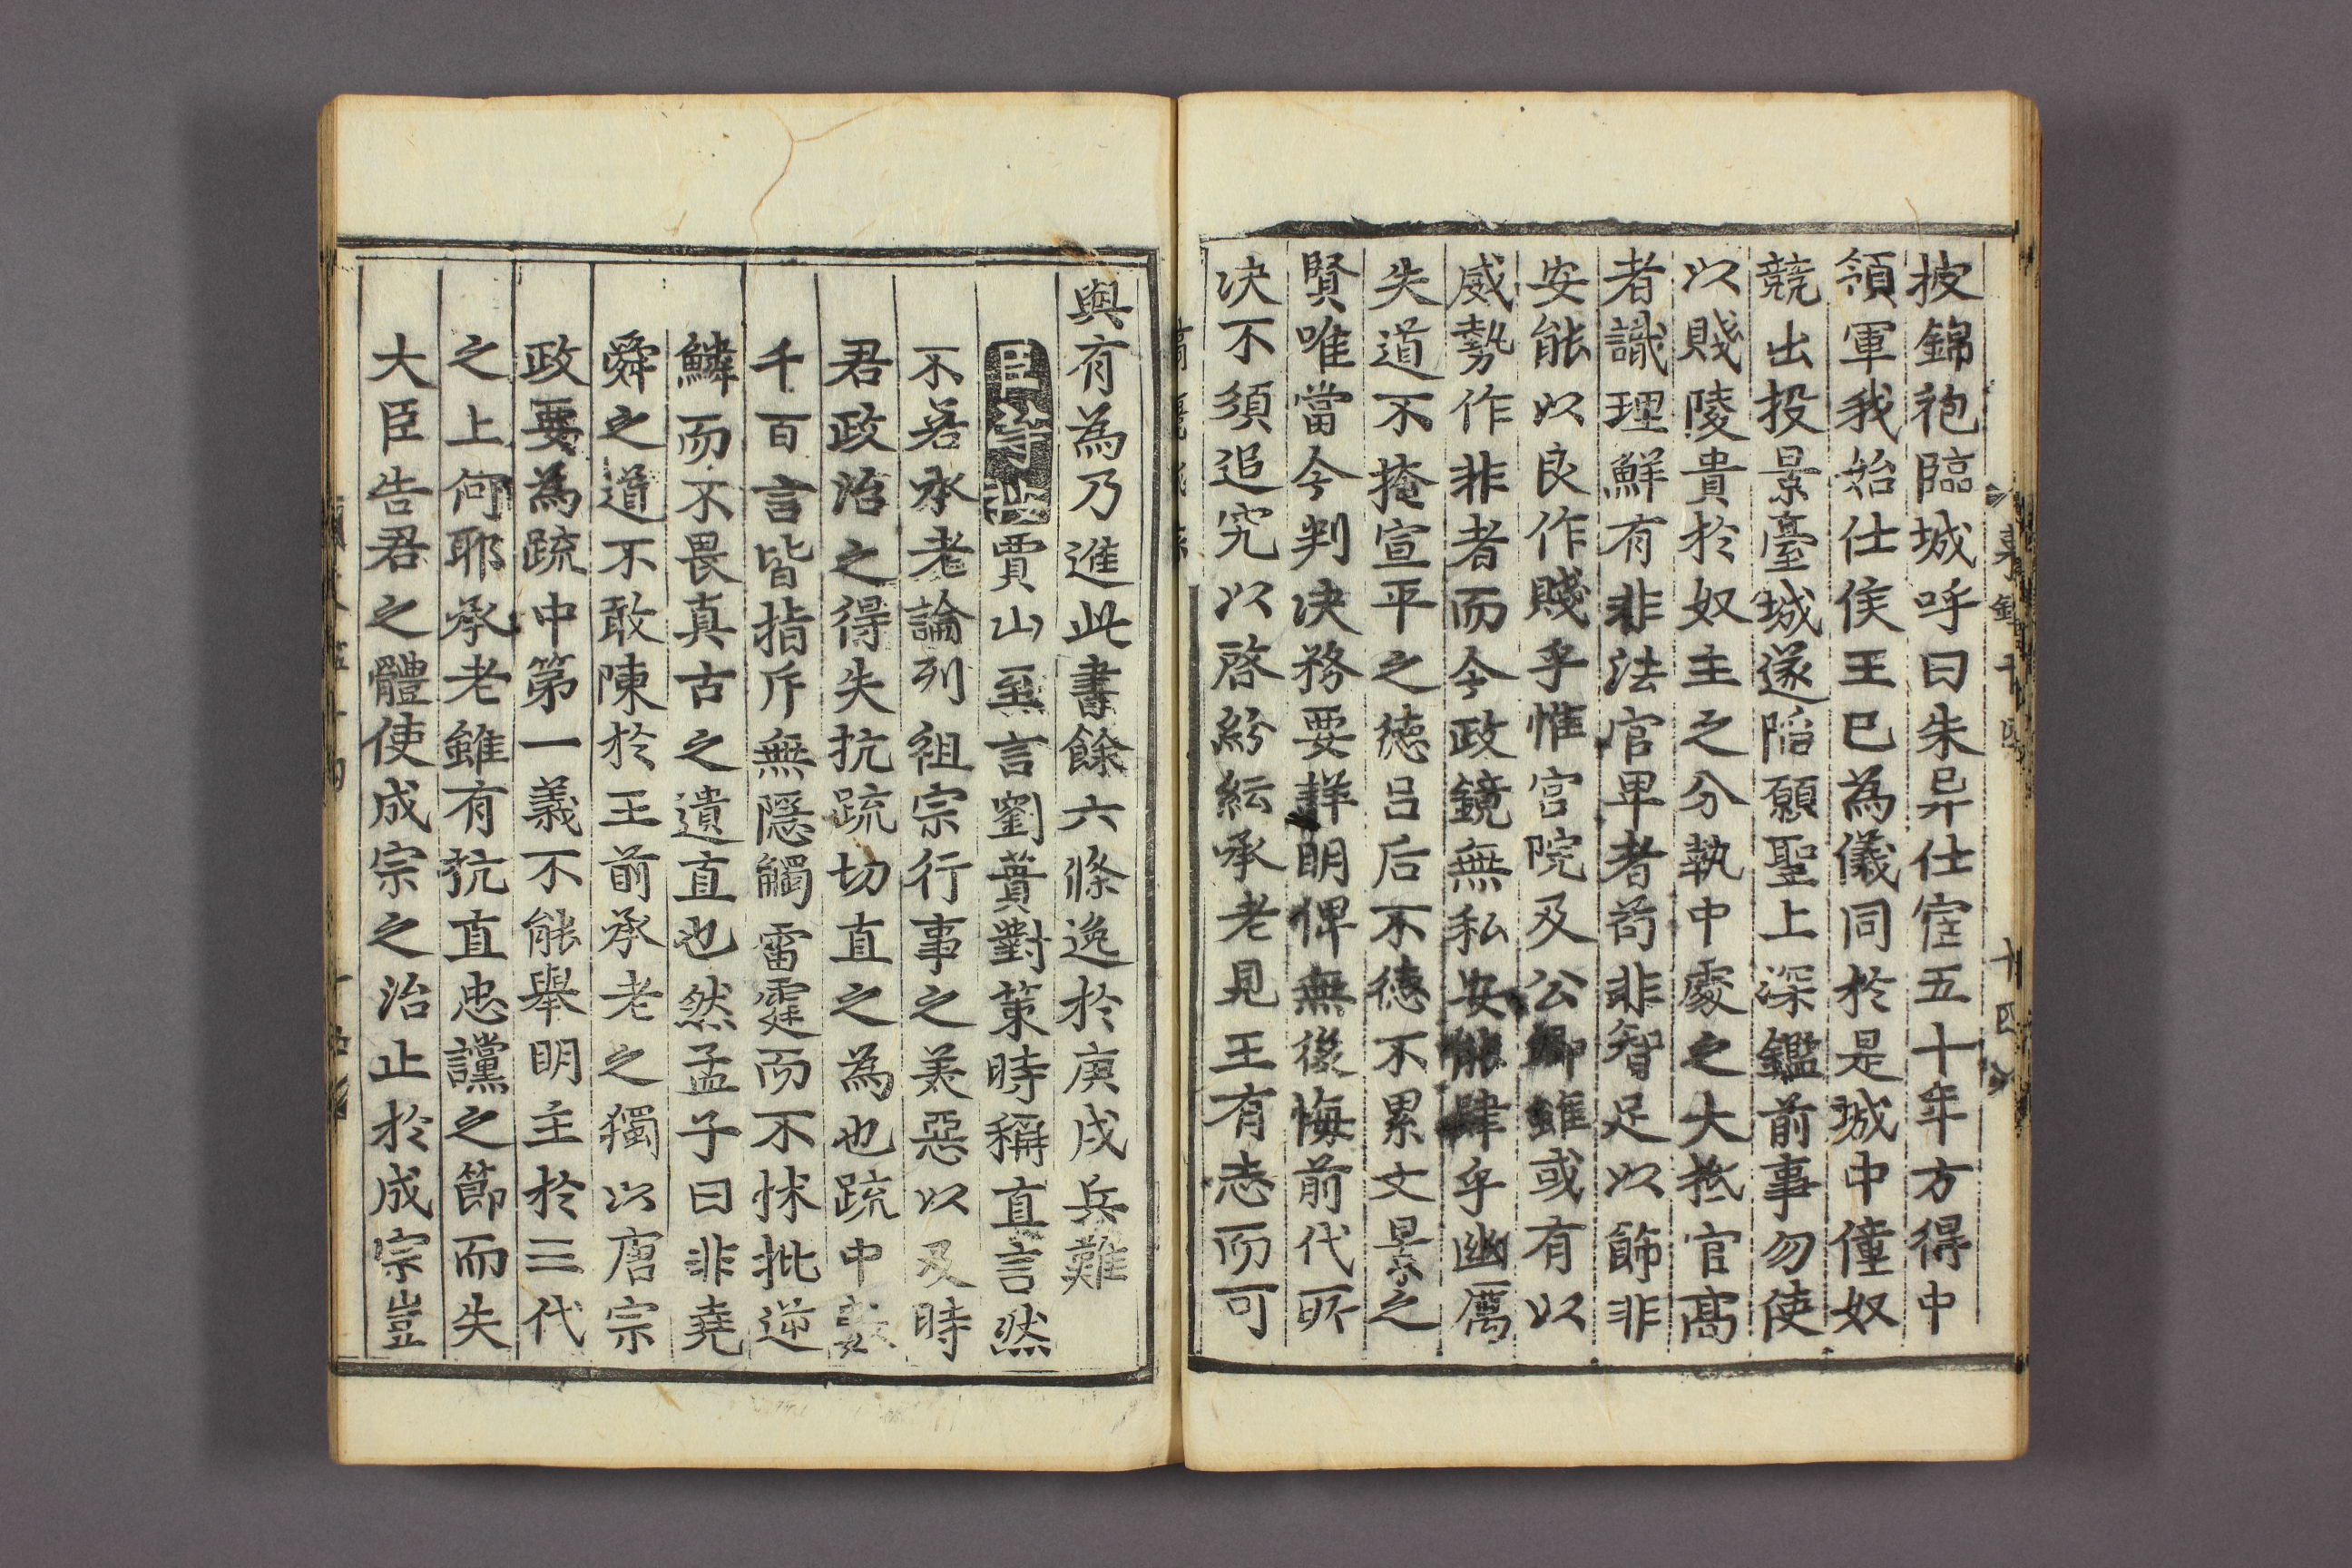 披錦袍臨城呼曰朱异仕宦五十年方得中
領軍我始仕侯王已為儀同於是城中僮奴
競出投景臺城遂陷願聖上深鑑前事勿使
以賤陵貴於奴主之分執中處之大抵官高
者識理鮮有非法官卑者苟非智足以飾非
安能以良作賤乎惟宮院及公卿雖或有以
威勢作非者而今政鏡無私安能肆乎幽厲
失道不掩宣平之德呂后不德不累文景之
賢唯當今判决務要詳明俾無後悔前代所
决不須追究以啓紛紜承老見王有志而可
與有為乃進此書餘六條逸於庚戌兵難
臣等按賈山至言劉蕡對策時稱直言然
不若承老論列祖宗行事之美惡以及時
君政治之得失抗疏切直之為也疏中數
千百言皆指斥無隱觸雷霆而不怵批逆
鱗而不畏真古之遺直也然孟子曰非堯
舜之道不敢陳於王前承老之獨以唐宗
政要為疏中第一義不能舉明主於三代
之上何耶承老雖有抗直忠讜之節而失
大臣告君之體使成宗之治止於成宗豈